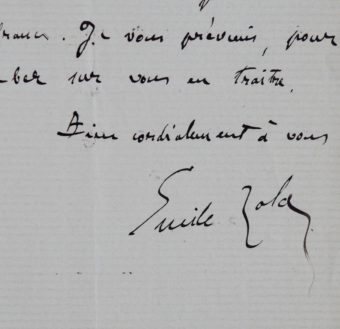 francs. Je vous préviens, pour
ber sur vous en traître.
Bien cordialement à vous
Emile Zola